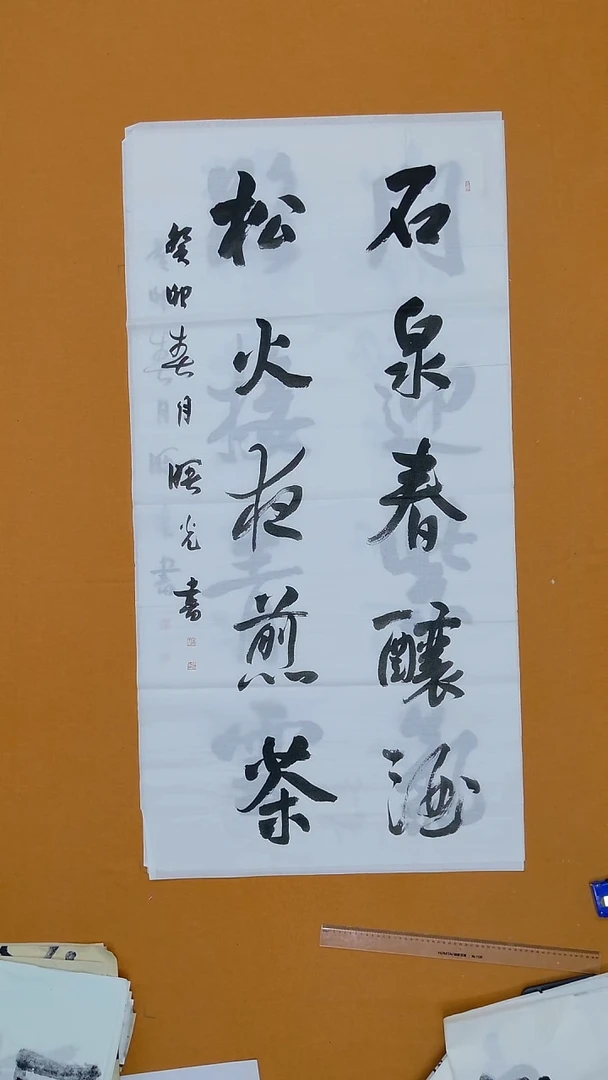 石泉春釀酒
松火夜煎茶
癸卯春月曙光書